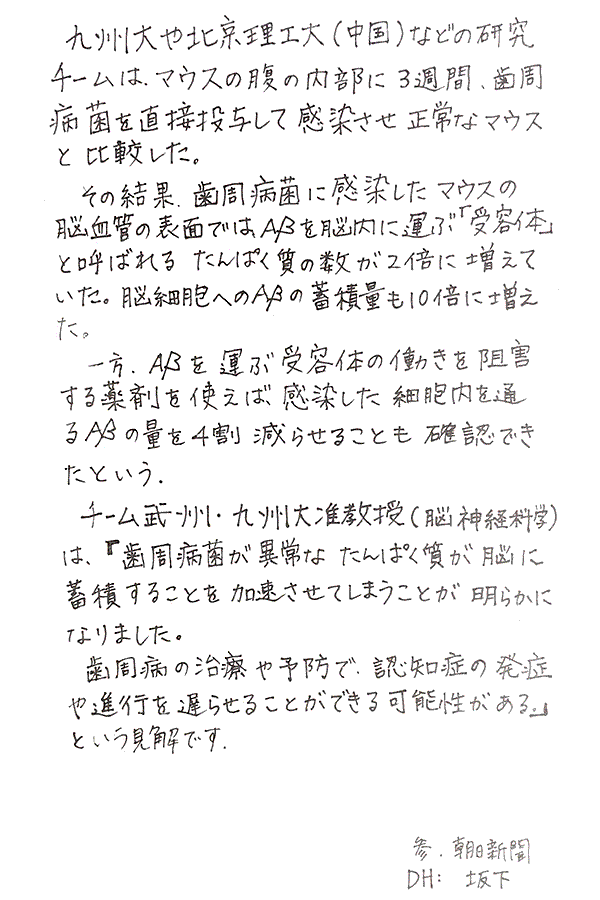 九州大や北京理工大(中国)などの研究
チームは、マウスの腹の内部に3週間、歯周
病菌を直接投与して感染させ正常なマウス
と比較した。
その結果、歯周病菌に感染したマウスの
脳血管の表面ではAβを脳内に運ぶ「受容体」
と呼ばれるたんぱく質の数が2倍に増えて
いた。脳細胞へのAβの蓄積量も10倍に増え
た。
一方、Aβを運ぶ受容体の働きを阻害
する薬剤を使えば、感染した細胞内を通
るAβの量を4割減らせることも確認でき
たという.
チーム武州・九州大准教授(脳神経科学)
は、『歯周病菌が異常なたんぱく質が脳に
蓄積することを加速させてしまうことが明らかに
なりました。
歯周病の治療や予防で、認知症の発症
や進行を遅らせることができる可能性がある.』
という見解です.
参.朝日新聞
DH: 坂下